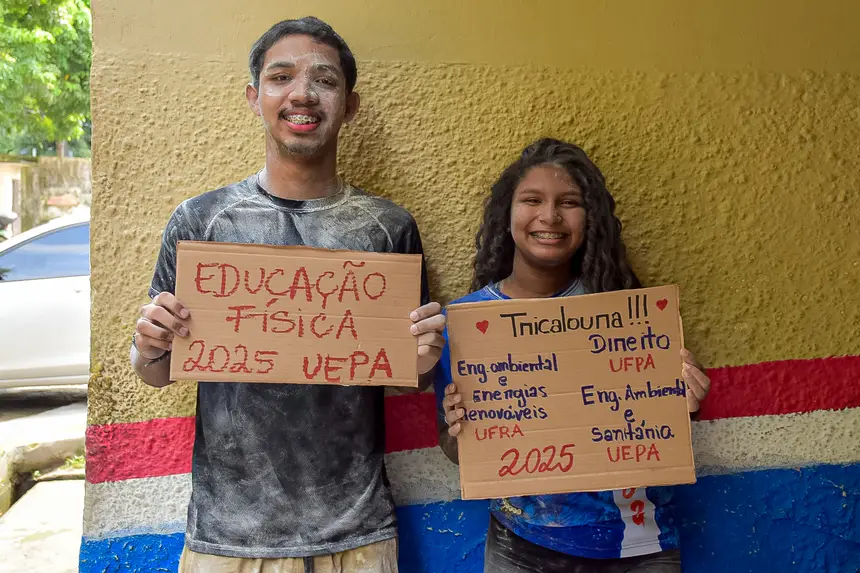 EDUCAÇÃO
FÍSICA
2025 UEPA
Tricaloura!!!
Direito
UFPA
Eng. ambiental
e
Energias
renováveis
UFRA
Eng. Ambiental
e
Sanitária
UEPA
2025